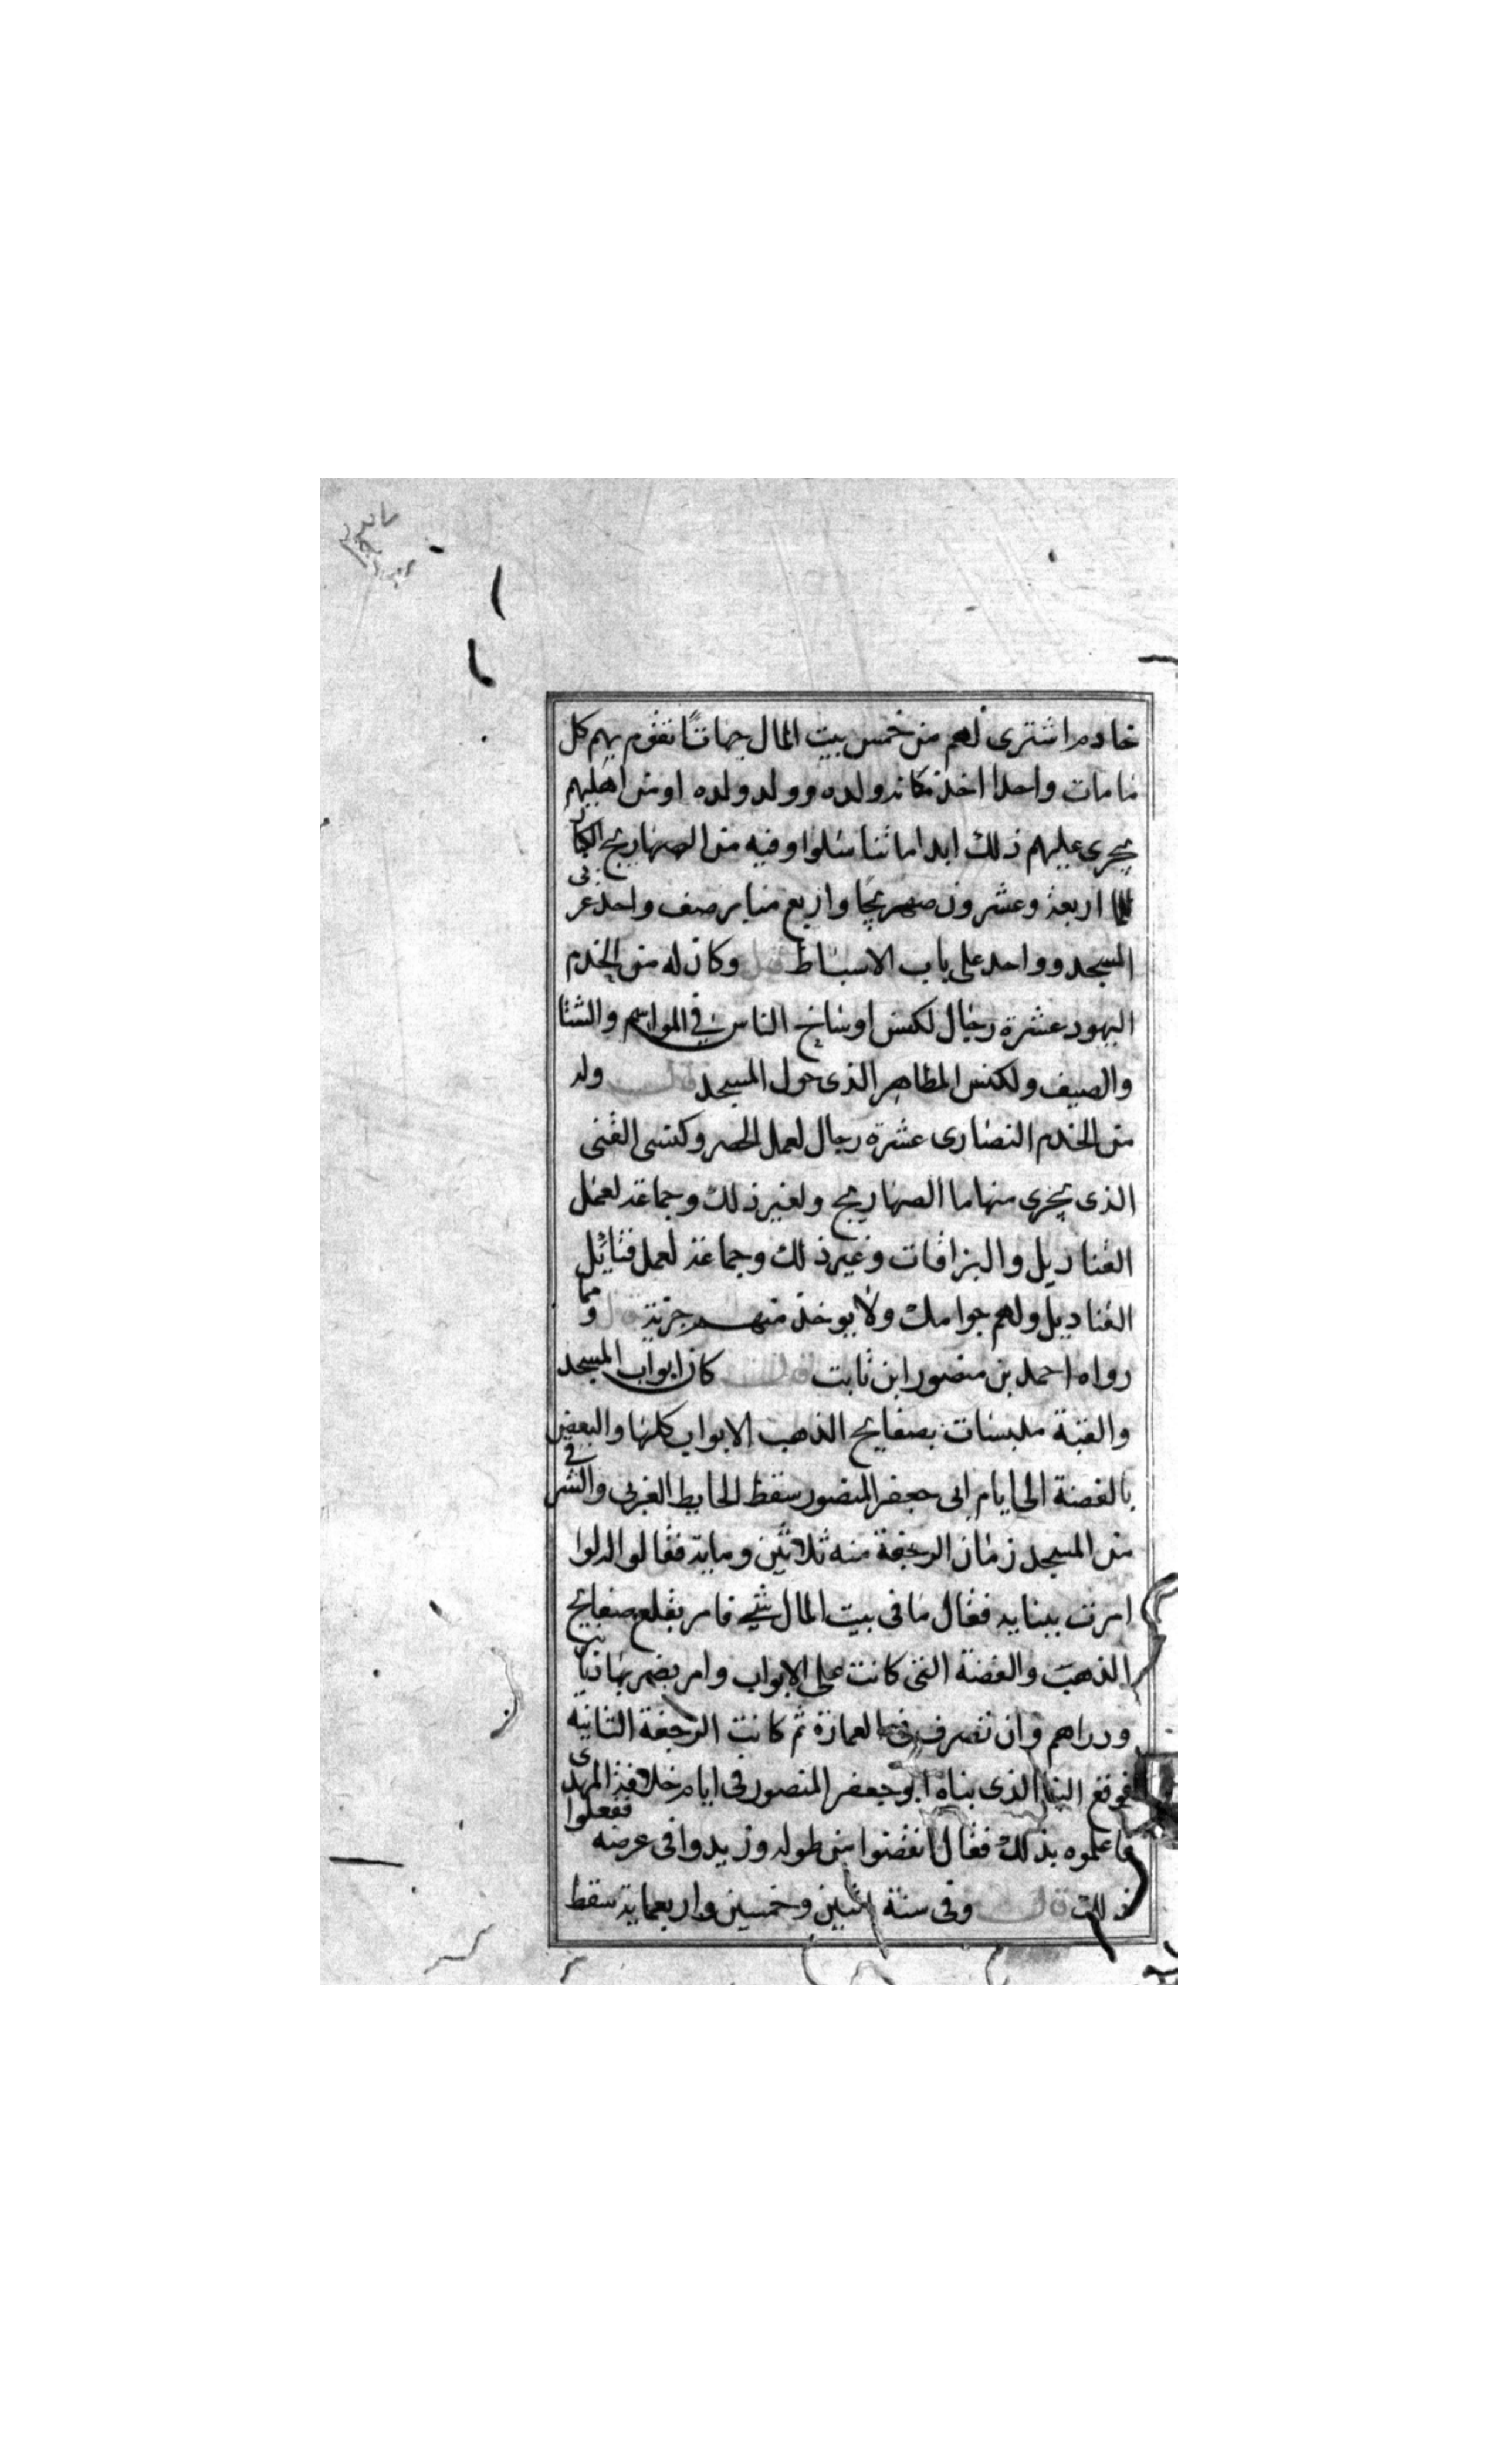 خادم اشترى لهم من خمس بيت المال جهاتًا تقوم بهم كل
ما مات واحدا اخذ مكانه ولده وولد ولده او من اهليهم
يجرى عليهم ذلك ابدا ما تناسلوا وفيه من الصهاريج الكبار
اربعة وعشرون صهريجا واربع منابر صف واحد غربى
المسجد وواحد على باب الاسباط قيل وكان له من الخدم
اليهود عشرة رجال لكنس اوساخ الناس فى المواسم والشتا
والصيف ولكنس المطاهر الذى حول المسجد قال وله
من الخدم النصارى عشرة رجال لعمل الحصر وكنسى القنى
الذى يجرى منها ما الصهاريج ولغير ذلك وجماعة لعمل
القناديل والبزاقات وغير ذلك وجماعة لعمل فتائل
القناديل ولهم جوامك ولا يوخذ منهم جزية قال ومما
رواه احمد بن منصور ابن ثابت قال كان ابواب المسجد
والقبة ملبسات بصفايح الذهب الابواب كلها والبعض
بالفضة الى ايام ابى جعفر المنصور سقط الحايط الغربى والشرقى
من المسجد زمان الرجفة سنه ثلاثين وماية فقالوا له لوا
امرت ببنايه فقال ما فى بيت المال شيء فامر بقلع صفايح
الذهب والفضة التى كانت على الابواب وامر بضربها دنانير
ودراهم وان تصرف فى العمارة ثم كانت الرجفة الثانيه
فوقع البنا الذى بناه ابو جعفر المنصور فى ايام خلافة المهدى
فاعلموه بذلك فقال انقضوا من طوله وزيدوا فى عرضه ففعلوا
ذلك قال وفى سنة اثنين وخمسين واربعماية سقط